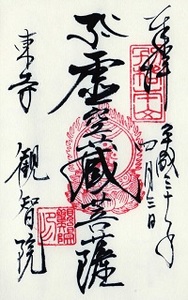 奉拝
平成三十年
四月三日
虚空蔵菩薩
東寺
観智院